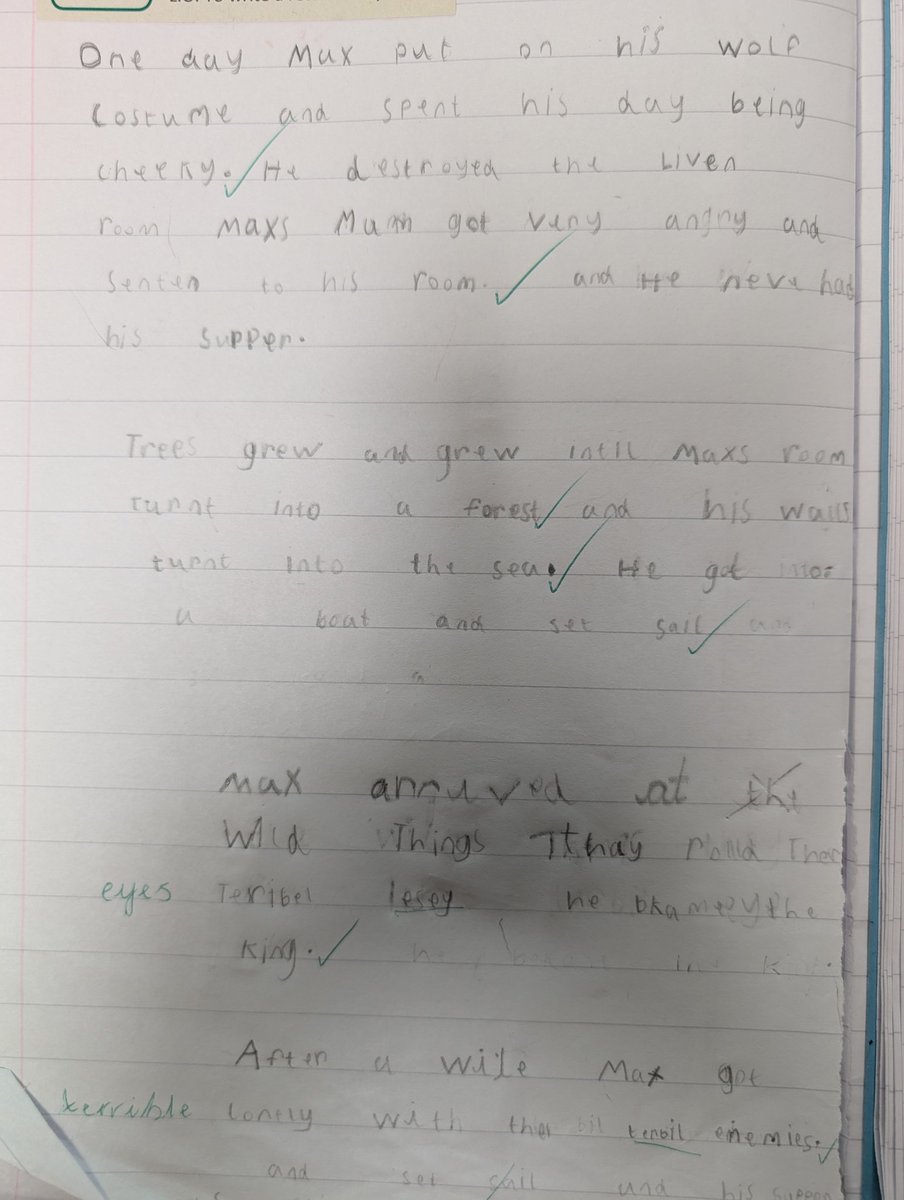 One day Max put on his wolf
costume and spent his day being
cheeky. He destroyed the Liven
room maxs Mum got very angry and
senten to his room. and He neve had
his supper.
Trees grew and grew intil Maxs room
turnt into a forest and his walls
turnt into the sea. He got
a boat and set sail
Max at
Wild Things Thay
eyes Teribel leseg he the
king.
After a wile Max got
terrible lonely with ther teroil enemies.
and set sail and his